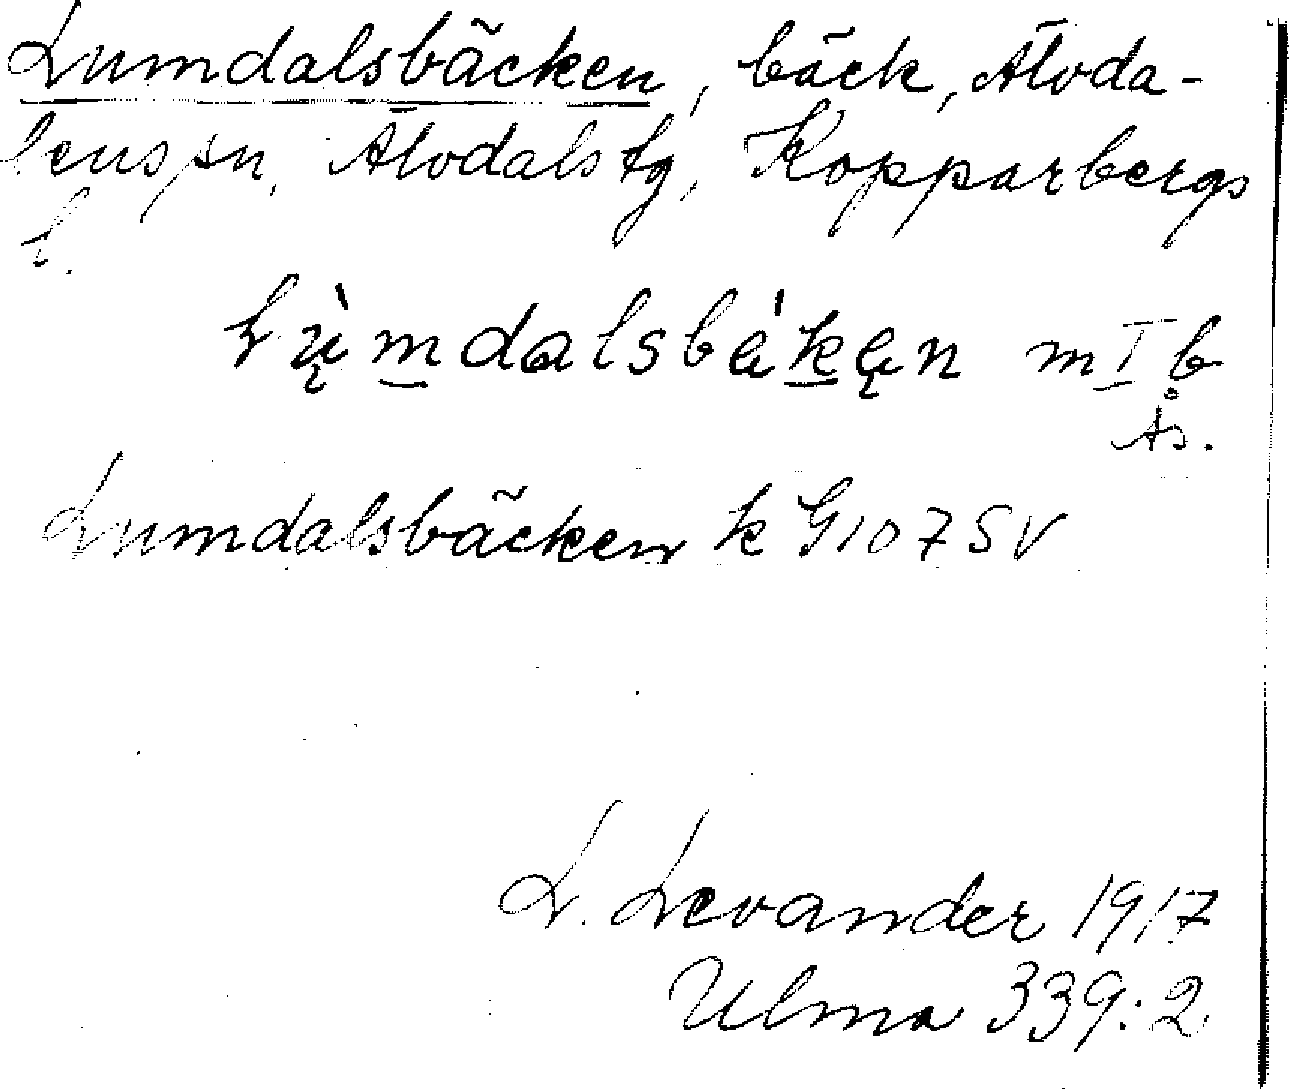 Lumdalsbäcken, bäck, Älvda-
lens sn, Älvdals tg, Kopparbergs
l.
lų̀m̲dalsbák̲ęn m I b
Ås.
Lumdalsbäcken k G107SV
L. Levander 1917
Ulma 339:2